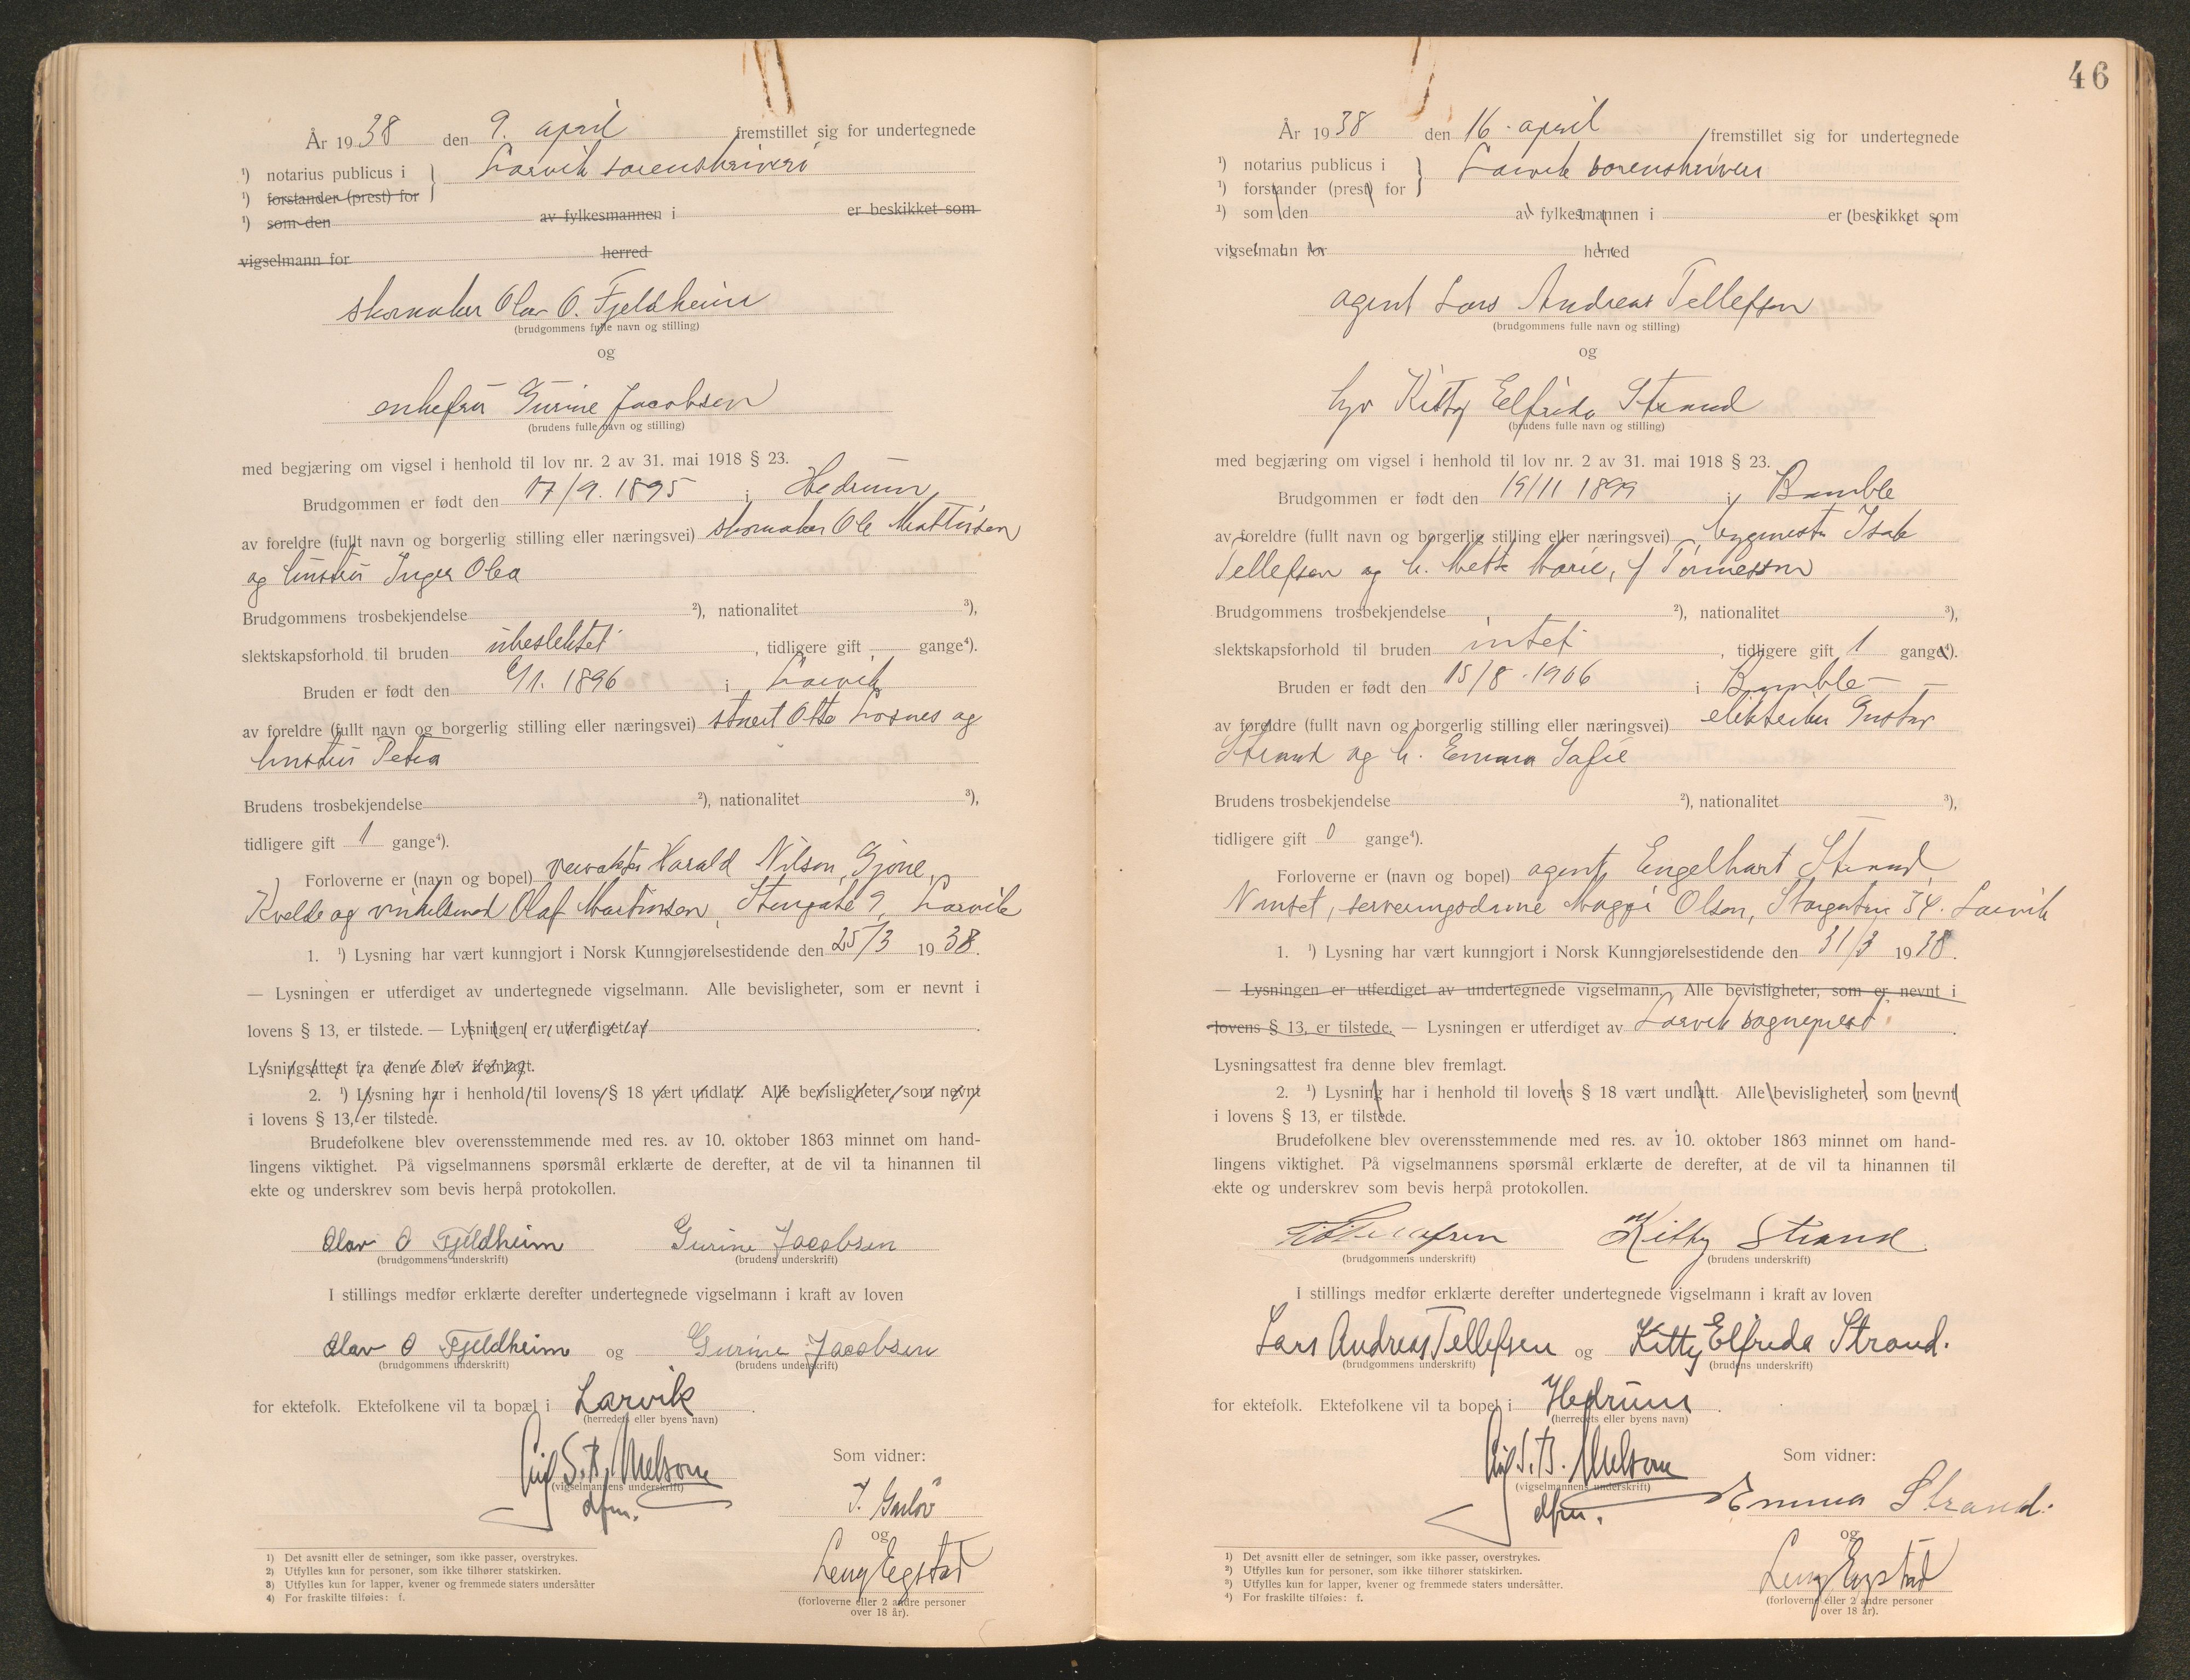 År 1938 den 9. april fremstillet sig for undertegnede
¹) notarius publicus i } Larvik sorenskriveri
¹) forstander (prest) for
¹) som den av fylkesmannen i er beskikket som
vigselmann for herred
skomaker Olav O. Fjeldheim
(brudgommens fulle navn og stilling)
og
enkefru Gurine Jacobsen
(brudens fulle navn og stilling)
med begjæring om vigsel i henhold til lov nr. 2 av 31. mai 1918 § 23.
Brudgommen er født den 17/9. 1895 i Hedrum
av foreldre (fullt navn og borgerlig stilling eller næringsvei) skomaker Ole Mathisen
og hustru Inger Olea
Brudgommens trosbekjendelse ²), nationalitet ³),
slektskapsforhold til bruden ubeslektet , tidligere gift gange⁴).
Bruden er født den 6/1. 1896 i Larvik
av foreldre (fullt navn og borgerlig stilling eller næringsvei) Otto Losnes og
hustru Petra
Brudens trosbekjendelse ²), nationalitet ³),
tidligere gift 1 gange⁴).
Forloverne er (navn og bopel) Harald Nilsen, Gjone,
Kvelde og Olaf Martinsen, Stengate 9, Larvik
1. ¹) Lysning har vært kunngjort i Norsk Kunngjørelsestidende den 25/3 1938.
— Lysningen er utferdiget av undertegnede vigselmann. Alle bevisligheter, som er nevnt i
lovens § 13, er tilstede. — Lysningen er utferdiget av
Lysningsattest fra denne blev fremlagt.
2. ¹) Lysning har i henhold til lovens § 18 vært undlatt. Alle bevisligheter, som nevnt
i lovens § 13, er tilstede.
Brudefolkene blev overensstemmende med res. av 10. oktober 1863 minnet om hand-
lingens viktighet. På vigselmannens spørsmål erklærte de derefter, at de vil ta hinannen til
ekte og underskrev som bevis herpå protokollen.
Olav O Fjeldheim Gurine Jacobsen
(brudgommens underskrift) (brudens underskrift)
I stillings medfør erklærte derefter undertegnede vigselmann i kraft av loven
Olav O Fjeldheim og Gurine Jacobsen
(brudgommens underskrift) (brudens underskrift)
for ektefolk. Ektefolkene vil ta bopæl i Larvik
(herredets eller byens navn)
S. B. Nielsen
(vigselmannens underskrift)
dfm.
Som vidner:
og
Leny Egstad
(forloverne eller 2 andre personer
over 18 år).
1) Det avsnitt eller de setninger, som ikke passer, overstrykes.
2) Utfylles kun for personer, som ikke tilhører statskirken.
3) Utfylles kun for lapper, kvener og fremmede staters undersåtter
4) For fraskilte tilføies: f.
46
År 1938 den 16. april fremstillet sig for undertegnede
¹) notarius publicus i } Larvik sorenskriveri
¹) forstander (prest) for
¹) som den av fylkesmannen i er beskikket som
vigselmann for herred
agent Lars Andreas Tellefsen
(brudgommens fulle navn og stilling)
og
Kitty Elfrida Strand
(brudens fulle navn og stilling)
med begjæring om vigsel i henhold til lov nr. 2 av 31. mai 1918 § 23.
Brudgommen er født den 19/11 1899 i Bamble
av foreldre (fullt navn og borgerlig stilling eller næringsvei) bygmester Isak
Tellefsen og h. Mette Marie, f Tønnessen
Brudgommens trosbekjendelse ²), nationalitet ³),
slektskapsforhold til bruden intet , tidligere gift 1 gange⁴).
Bruden er født den 15/8. 1906 i Bamble
av foreldre (fullt navn og borgerlig stilling eller næringsvei) elektriker Gustav
Strand og h. Emma Sofie
Brudens trosbekjendelse ²), nationalitet ³),
tidligere gift 0 gange⁴).
Forloverne er (navn og bopel) agent Engelhart Strand
Nanset, serveringsdame Maggi Olsen, Storgaten 34. Larvik
1. ¹) Lysning har vært kunngjort i Norsk Kunngjørelsestidende den 31/3 1938.
— Lysningen er utferdiget av undertegnede vigselmann. Alle bevisligheter, som er nevnt i
lovens § 13, er tilstede. — Lysningen er utferdiget av Larvik sogneprest.
Lysningsattest fra denne blev fremlagt.
2. ¹) Lysning har i henhold til lovens § 18 vært undlatt. Alle bevisligheter som nevnt
i lovens § 13, er tilstede.
Brudefolkene blev overensstemmende med res. av 10. oktober 1863 minnet om hand-
lingens viktighet. På vigselmannens spørsmål erklærte de derefter, at de vil ta hinannen til
ekte og underskrev som bevis herpå protokollen.
Kitty Strand
(brudgommens underskrift) (brudens underskrift)
I stillings medfør erklærte derefter undertegnede vigselmann i kraft av loven
Lars Andreas Tellefsen og Kitty Elfrida Strand.
(brudgommens underskrift) (brudens underskrift)
for ektefolk. Ektefolkene vil ta bopel i Hedrum
(herredets eller byens navn)
S. B. Nielsen
(vigselmannens underskrift)
dfm.
Som vidner:
Emma Strand.
og
Leny Egstad
(forloverne eller 2 andre personer
over 18 år).
1) Det avsnitt eller de setninger, som ikke passer, overstrykes.
2) Utfylles kun for personer, som ikke tilhører statskirken.
3) Utfylles kun for lapper, kvener og fremmede staters undersåtter.
4) For fraskilte tilføies: f.